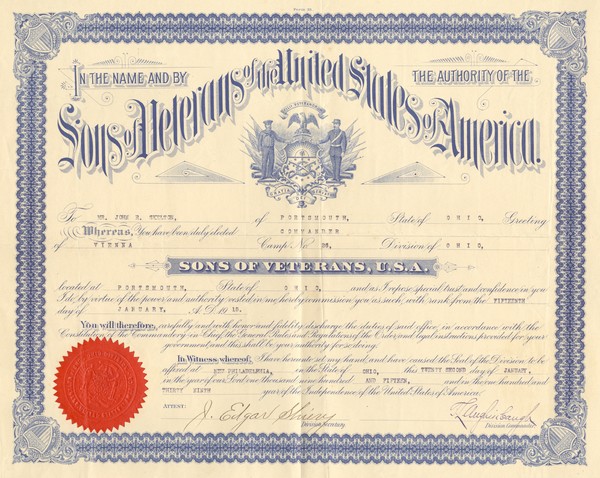 IN THE NAME AND BY THE AUTHORITY OF THE
Sons of Veterans of the United States of America.
To MR. JOHN R. THURTON, of PORTSMOUTH, State of OHIO, Greeting
Whereas, You have been duly elected COMMANDER
of VIENNA Camp No 26, Division of OHIO,
SONS OF VETERANS, U.S.A.
located at PORTSMOUTH, State of OHIO, and as I repose special trust and confidence in you
I do by virtue of the power and authority vested in me hereby commission you as such, with rank from the FIFTEENTH
day of JANUARY, A.D. 1915.
You will therefore, carefully and with honor and fidelity discharge the duties of said office, in accordance with the
Constitution, Commander-in-Chief, the General Rules and Regulation of the Order, and legal instructions provided for your
government, and this shall be your authority for so doing.
In Witness whereof, I have hereunto set my hand and have caused the Seal of the Division to be
affixed at NEW PHILADELPHIA, in the State of OHIO, this TWENTY SECOND day of JANUARY,
in the year of our Lord one thousand nine hundred AND FIFTEEN, and in the one hundred and
THIRTY NINTH year of the Independence of the United States of America.
ATTEST:
J. Edgar
Division Secretary
Division Commander